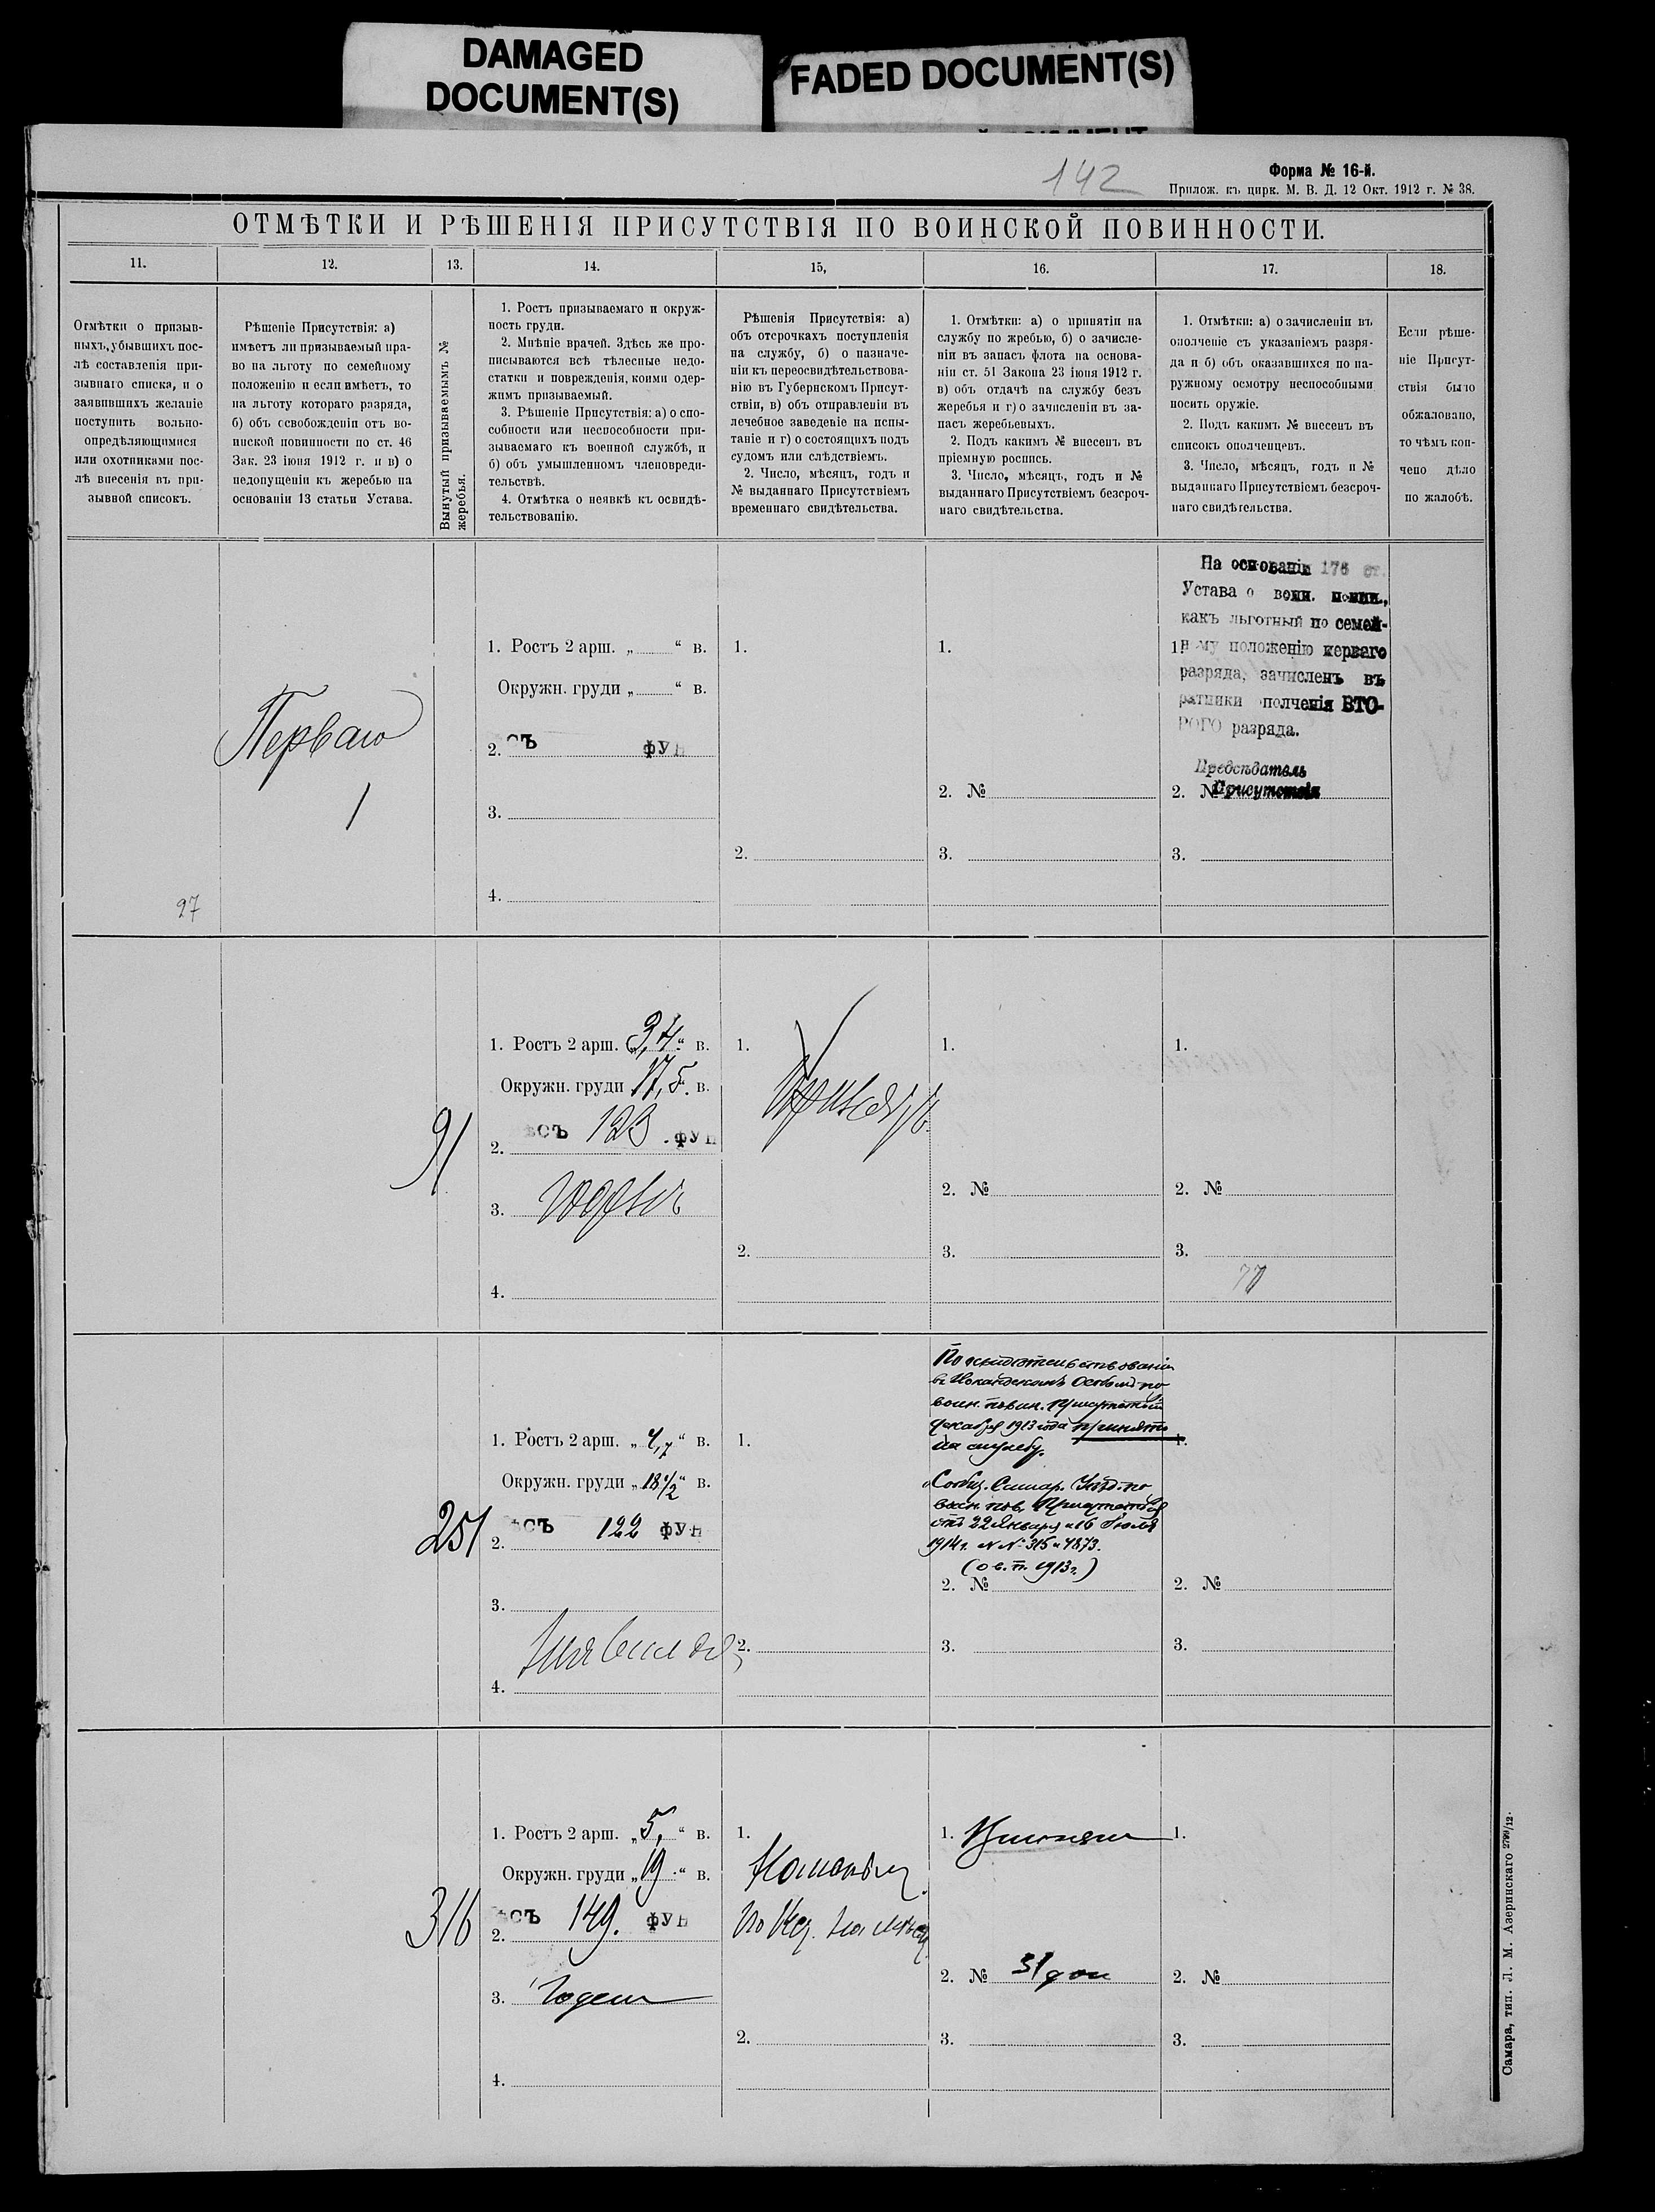 DAMAGED
DOCUMENT(S)
FADED DOCUMENT(S)
142
Форма № 16-й.
Прилож. къ цирк. М. В. Д. 12 Окт. 1912 г. № 38.
ОТМѢТКИ И РѢШЕНІЯ ПРИСУТСТВІЯ ПО ВОИНСКОЙ ПОВИННОСТИ.
11.
12.
13.
14.
15,
16.
17.
18.
Отмѣтки о призыв-
ныхъ, убывшихъ пос-
лѣ составленія при-
зывнаго списка, и о
заявившихъ желаніе
поступить вольно-
опредѣляющимися
или охотниками пос-
лѣ внесенія въ при-
зывной списокъ.
Рѣшеніе Присутствія: а)
имѣетъ ли призываемый пра-
во на льготу по семейному
положенію и если имѣетъ, то
на льготу котораго разряда,
б) объ освобожденіи отъ во-
инской повинности по ст. 46
Зак. 23 іюня 1912 г. и в) о
недопущеніи къ жеребью на
основаніи 13 статьи Устава.
Вынутый призываемымъ №
жеребья.
1. Ростъ призываемаго и окруж-
ность груди.
2. Мнѣніе врачей. Здѣсь же про-
писываются всѣ тѣлесные недо-
статки и поврежденія, коими одер-
жимъ призываемый.
3. Рѣшеніе Присутствія: а) о спо-
собности или неспособности при-
зываемаго къ военной службѣ, и
б) объ умышленномъ членовреди-
тельствѣ.
4. Отмѣтка о неявкѣ къ освидѣ-
тельствованію.
Рѣшенія Присутствія: а)
объ отсрочкахъ поступленія
на службу, б) о назначе-
ніи къ переосвидѣтельствова-
нію въ Губернскомъ Присут-
ствіи, в) объ отправленіи въ
лечебное заведеніе на испы-
таніе и г) о состоящихъ подъ
судомъ или слѣдствіемъ.
2. Число, мѣсяцъ, годъ и
№ выданнаго Присутствіемъ
временнаго свидѣтельства.
1. Отмѣтки: а) о принятіи на
службу по жребью, б) о зачисле-
ніи въ запасъ флота на основа-
ніи ст. 51 Закона 23 іюня 1912 г.
в) объ отдачѣ на службу безъ
жеребья и г) о зачисленіи въ за-
пасъ жеребьевыхъ.
2. Подъ какимъ № внесенъ въ
пріемную роспись.
3. Число, мѣсяцъ, годъ и №
выданнаго Присутствіемъ безсроч-
наго свидѣтельства.
1. Отмѣтки: а) о зачисленіи въ
ополченіе съ указаніемъ разря-
да и б) объ оказавшихся по на-
ружному осмотру неспособными
носить оружіе.
2. Подъ какимъ № внесенъ въ
списокъ ополченцевъ.
3. Число, мѣсяцъ, годъ и №
выданнаго Присутствіемъ безсроч-
наго свидѣтельства.
Если рѣше-
ніе Присут-
ствія было
обжаловано,
то чѣмъ кон-
чено дѣло
по жалобѣ.
Перваго
1
27
1. Ростъ 2 арш. „ “ в.
Окружн. груди „ “ в.
2. съ фун
3.
4.
1.
2.
1.
2. №
3.
На основаніи 176 ст.
Устава о воин. повин.,
какъ льготный по семей-
1. ному положенію перваго
разряда, зачисленъ въ
ратники ополченія ВТО-
РОГО разряда.
Предсѣдатель
2. № Присутствія
3.
91
1. Ростъ 2 арш. „3,4“ в.
Окружн. груди 17,5. в.
2. ѣсъ 123 .фун
3. Годенъ
4.
1.
2.
1.
2. №
3.
1.
2. №
3.
77
251
1. Ростъ 2 арш. „4,7“ в.
Окружн. груди „18 1/2“ в.
2. ѣсъ 122 фун
3.
4.
1.
2.
По освидѣтельствованіи
въ Кокандскомъ Особомъ по
воин. повин. Присутствіи
декабря 1913 года принятъ
на службу.
Сообщ. Самар. Уѣзд. по
воин. пов. Присутствія
отъ 22 Января и 16 Іюля
1914 г. № № 315 и 4873.
(о в. п. 1913 г.)
2. №
3.
1.
2. №
3.
316
1. Ростъ 2 арш. „5,“ в.
Окружн. груди „19“ в.
2. ѣсъ 149. фун
3. Годенъ
4.
1.
2.
1. Принятъ
2. № 31
3.
1.
2. №
3.
Самара, тип. Л. М. Азеринскаго 2799/12.